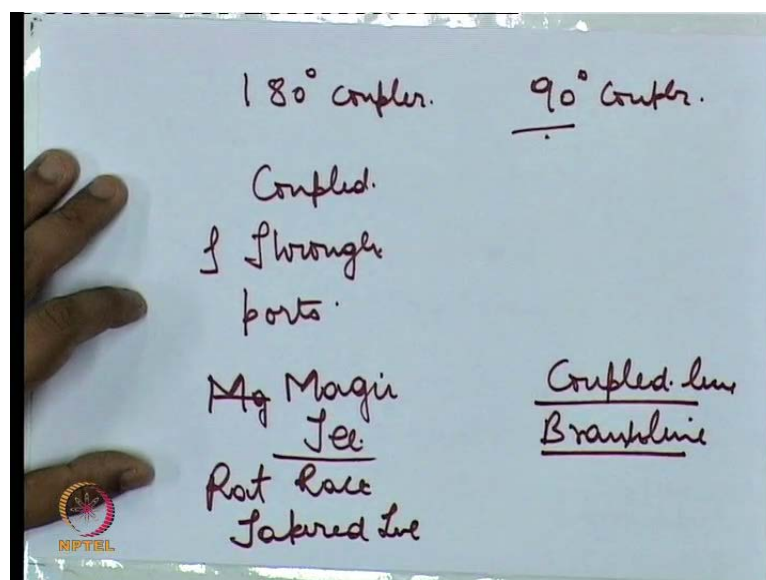 180° coupler.
90° coupler.
Coupled.
& Through
ports.
Mg Magic
Tee.
Rat Race
Tapered Line
Coupled line
Branchline
NPTEL